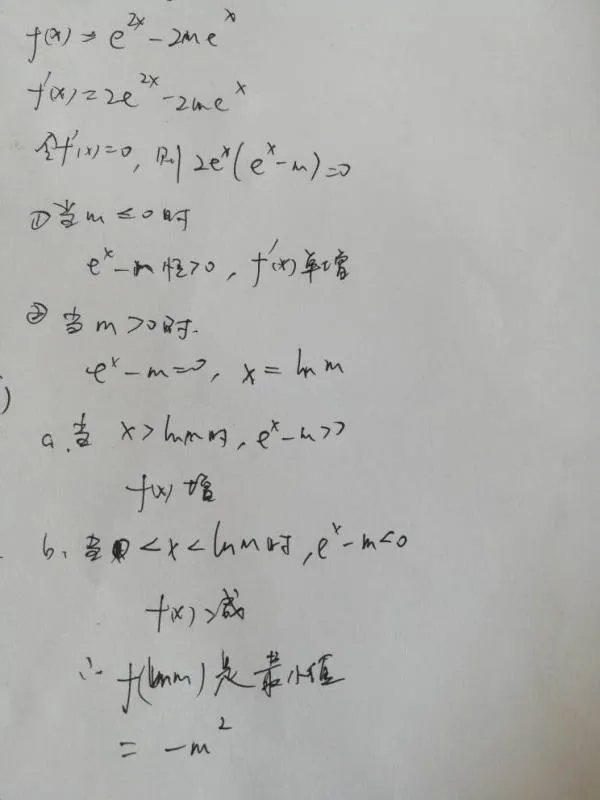 f(x) = e^{2x} - 2me^x
f'(x) = 2e^{2x} - 2me^x
令f'(x)=0, 则 2e^x(e^x-m)=0
① 当m≤0时
e^x-m恒>0, f'(x)单增
② 当m>0时.
e^x-m=0, x=ln m
a. 当 x>lnm时, e^x-m>0
f(x)增
b. 当0<x<lnm时, e^x-m<0
f(x)减
∴ f(lnm)是最小值
= -m^2
)